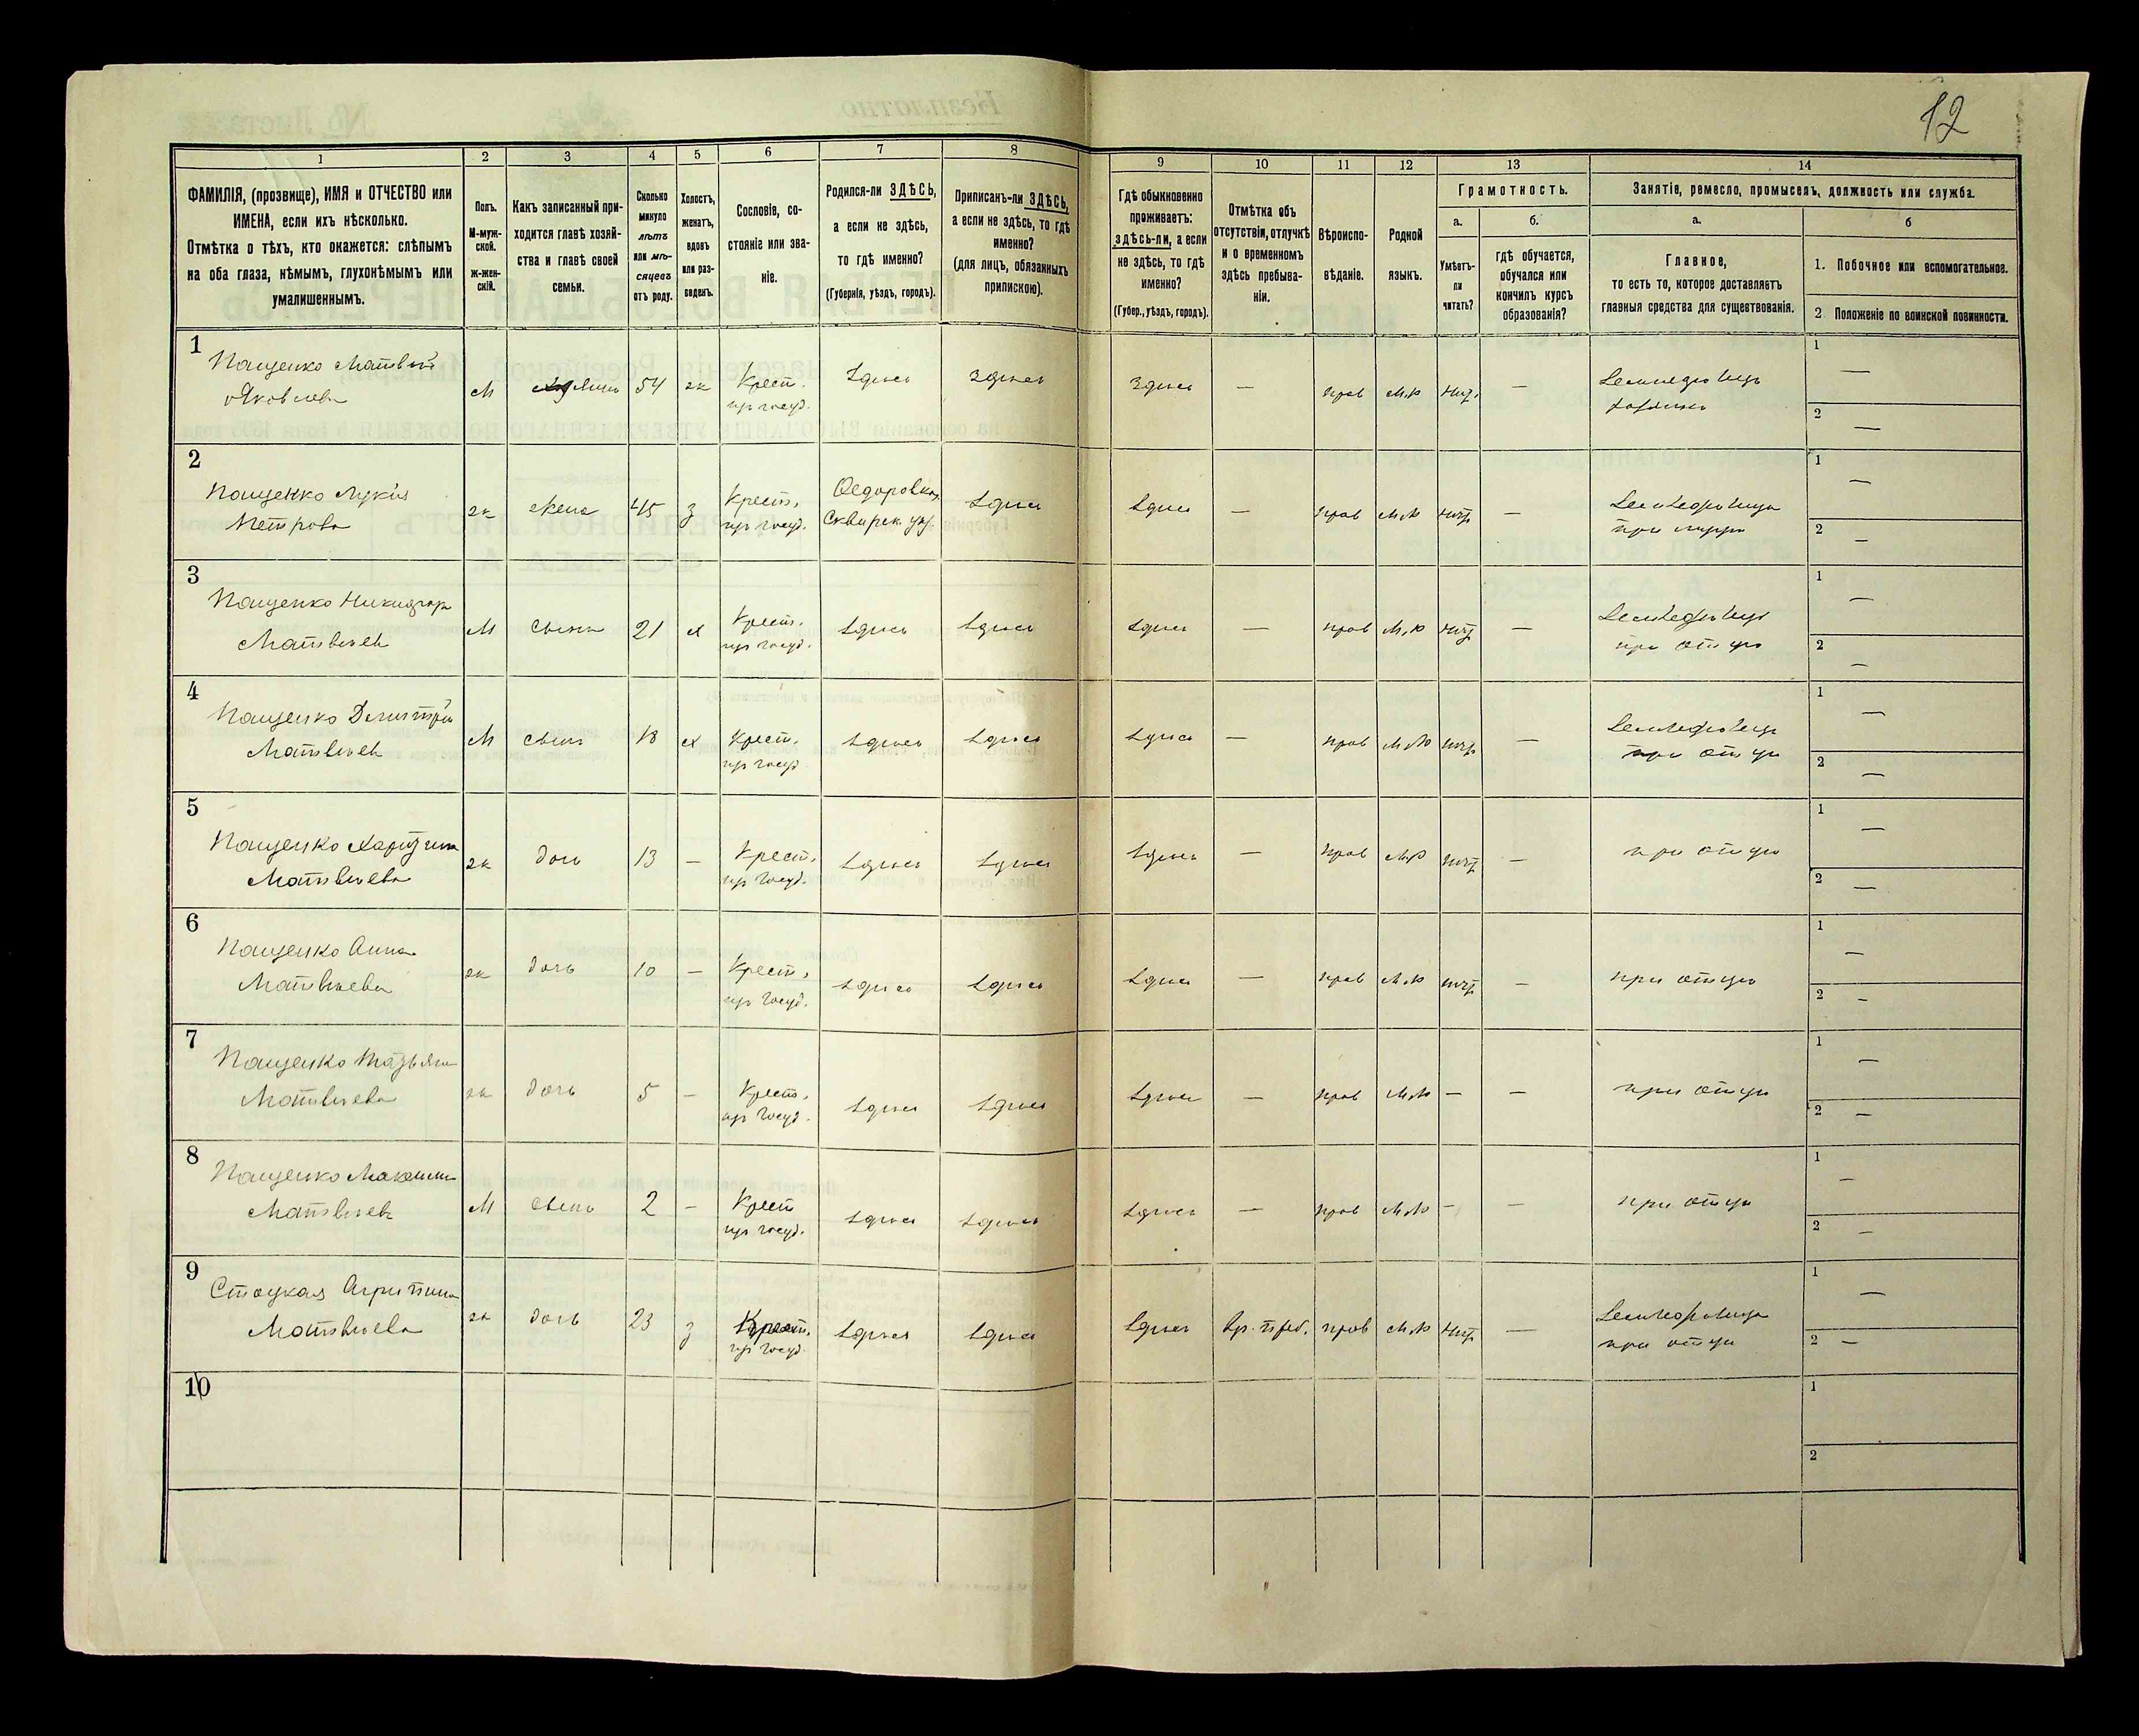 12
1 2 3 4 5 6 7 8 9 10 11 12 13 14
ФАМИЛІЯ, (прозвище), ИМЯ и ОТЧЕСТВО или ИМЕНА, если ихъ нѣсколько.
Отмѣтка о тѣхъ, кто окажется: слѣпымъ на оба глаза, нѣмымъ, глухонѣмымъ или умалишеннымъ.
Полъ. М-мужской. ж-женскій.
Какъ записанный приходится главѣ хозяйства и главѣ своей семьи.
Сколько минуло лѣтъ или мѣсяцевъ отъ роду.
Холостъ, женатъ, вдовъ или разведенъ.
Сословіе, состояніе или званіе.
Родился-ли ЗДѢСЬ, а если не здѣсь, то гдѣ именно?
(Губернія, уѣздъ, городъ).
Приписанъ-ли ЗДѢСЬ, а если не здѣсь, то гдѣ именно?
(для лицъ, обязанныхъ припискою).
Гдѣ обыкновенно проживаетъ: здѣсь-ли, а если не здѣсь, то гдѣ именно?
(Губер., уѣздъ, городъ).
Отмѣтка объ отсутствіи, отлучкѣ и о временномъ здѣсь пребываніи.
Вѣроисповѣданіе.
Родной языкъ.
Грамотность.
а. б.
Умѣетъ-ли читать?
гдѣ обучается, обучался или кончилъ курсъ образованія?
Занятіе, ремесло, промыселъ, должность или служба.
а. б
Главное,
то есть то, которое доставляетъ главныя средства для существованія.
1. Побочное или вспомогательное.
2 Положеніе по воинской повинности.
1 Пащенко Матвѣй
Яковлевъ
М 54 ж Крест.
из госуд.
Здѣсь Здѣсь Здѣсь — прав М.р нигр. —
Земледѣлецъ
хозяинъ
1 —
2 —
2 Пащенко Лукія
Петрова
ж жена 45 з Крест.
из госуд.
Федоровка
Сквирск. уѣз.
Здѣсь Здѣсь — прав М.р нигр —
Земледѣлица
при мужѣ
1 —
2 —
3 Пащенко Никифоръ
Матвѣевъ
М сынъ 21 х Крест.
из госуд.
Здѣсь Здѣсь Здѣсь — прав М.р нигр —
Земледѣлецъ
при отцѣ
1 —
2 —
4 Пащенко Димитрій
Матвѣевъ
М сынъ 18 х Крест.
из госуд
Здѣсь Здѣсь Здѣсь — прав М.р нигр —
Земледѣлецъ
при отцѣ
1 —
2 —
5 Пащенко Харитина
Матвѣева
ж дочь 13 — Крест.
из госуд.
Здѣсь Здѣсь Здѣсь — прав М.р нигр —
при отцѣ
1 —
2 —
6 Пащенко Анна
Матвѣева
ж дочь 10 — Крест.
из госуд.
Здѣсь Здѣсь Здѣсь — прав М.р нигр —
при отцѣ
1 —
2 —
7 Пащенко Татьяна
Матвѣева
ж дочь 5 — Крест.
из госуд.
Здѣсь Здѣсь Здѣсь — прав М.р — —
при отцѣ
1 —
2 —
8 Пащенко Максимъ
Матвѣевъ
М сынъ 2 — Крест
из госуд.
Здѣсь Здѣсь Здѣсь — прав М.р — —
при отцѣ
1 —
2 —
9 Стоцкая Агрипина
Матвѣева
ж дочь 23 з Крест.
из госуд
Здѣсь Здѣсь Здѣсь Вр. преб. прав М.р нигр —
Земледѣлица
при отцѣ
1 —
2 —
10
1
2